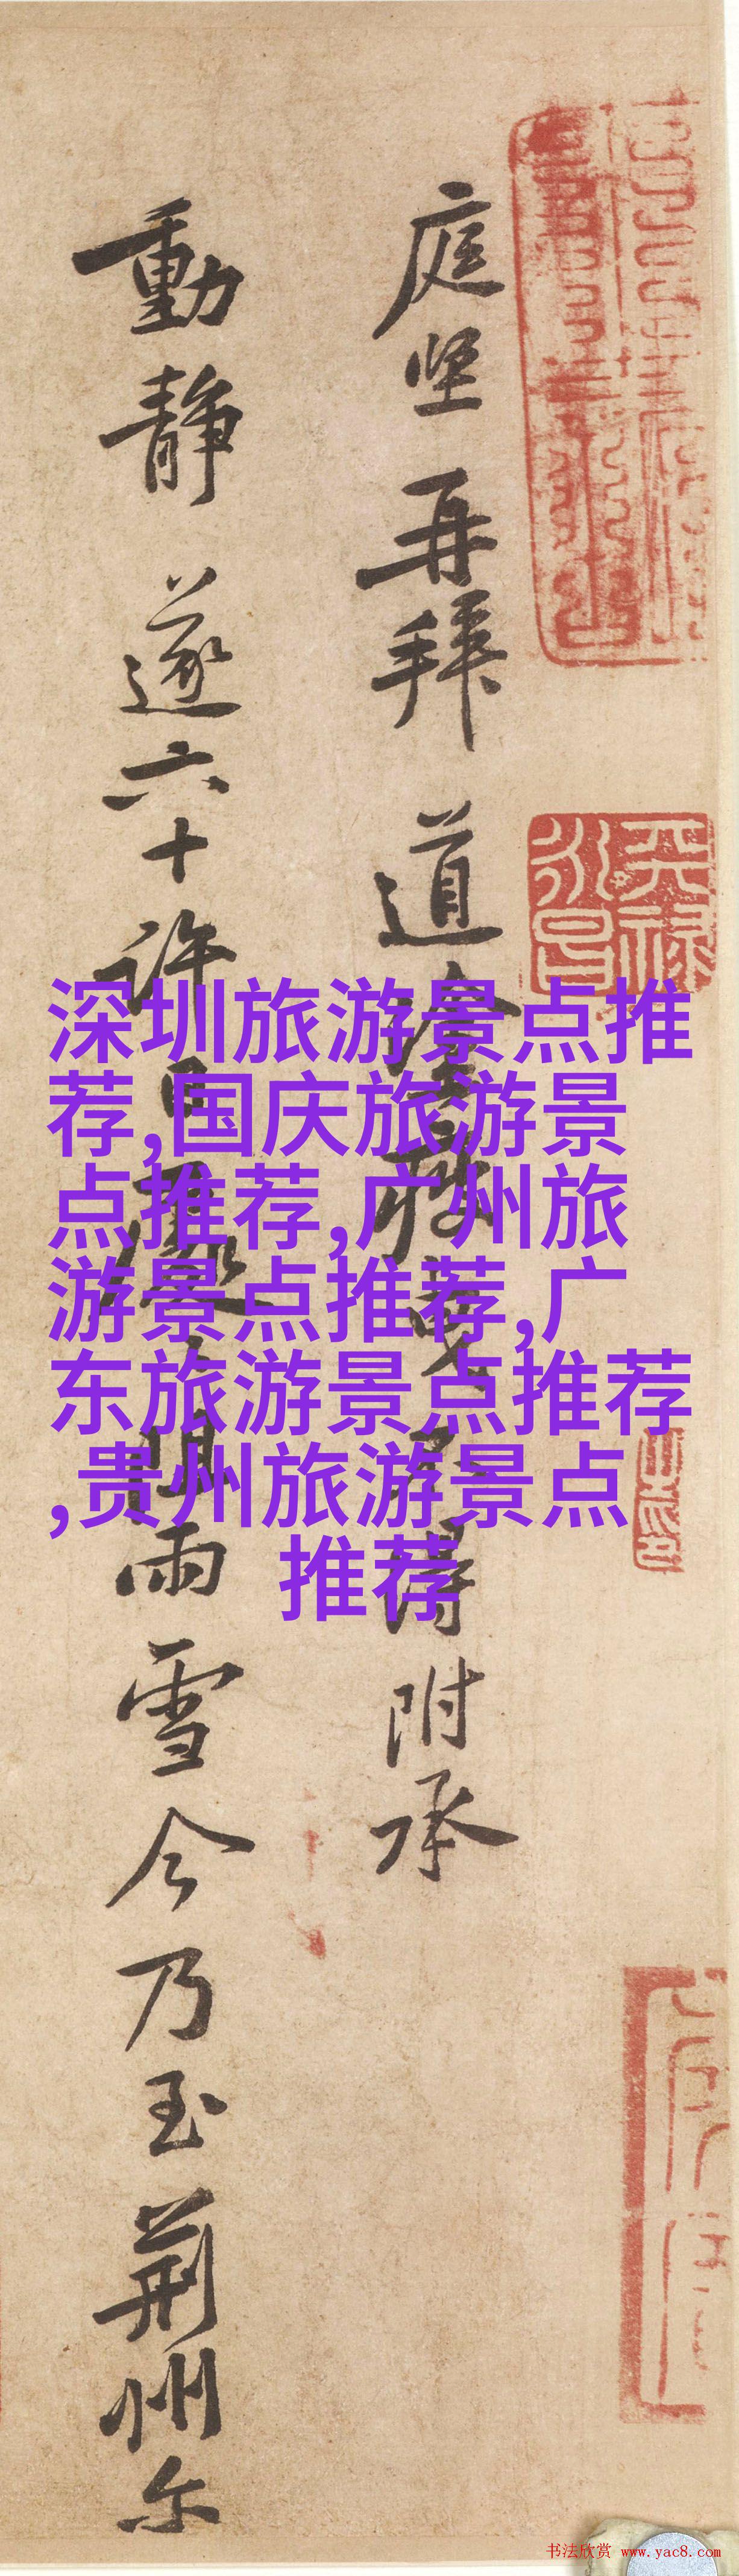 庭坚再拜道塗疲曳不得附承
動静遂六十許日阻雨雪今乃至荆州尔
深圳旅游景点推
荐,国庆旅游景
点推荐,广州旅
游景点推荐,广
东旅游景点推荐
,贵州旅游景点
推荐
天禄
永昌
书法欣赏 www.yac8.com